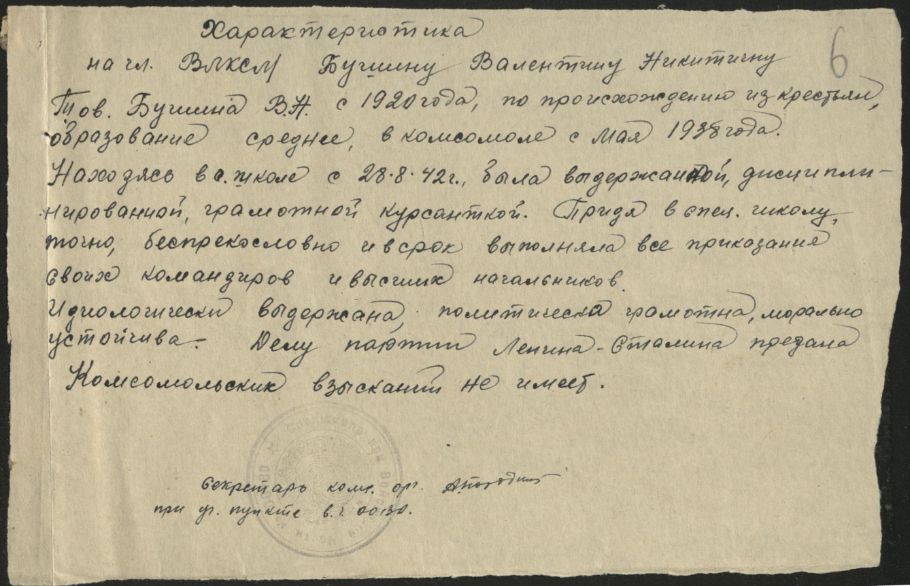 Характеристика
6
на чл. ВЛКСМ Бучшину Валентину Никитичну
Тов. Бучшина В.Н. с 1920 года, по происхождению из крестьян,
образование среднее, в комсомоле с Мая 1938 года.
Находясь в с. школе с 28.8.42г., была выдержанной, дисципли-
нированной, грамотной курсанткой. Придя в спец. школу,
точно, беспрекословно и в срок выполняла все приказание
своих командиров и высших начальников.
Идиологически выдержана, политически грамотна, морально
устойчива. Делу партии Ленина-Сталина предана
Комсомольских взысканий не имеет.
Секретарь комс. орг.
при уч. пункте в.ч.